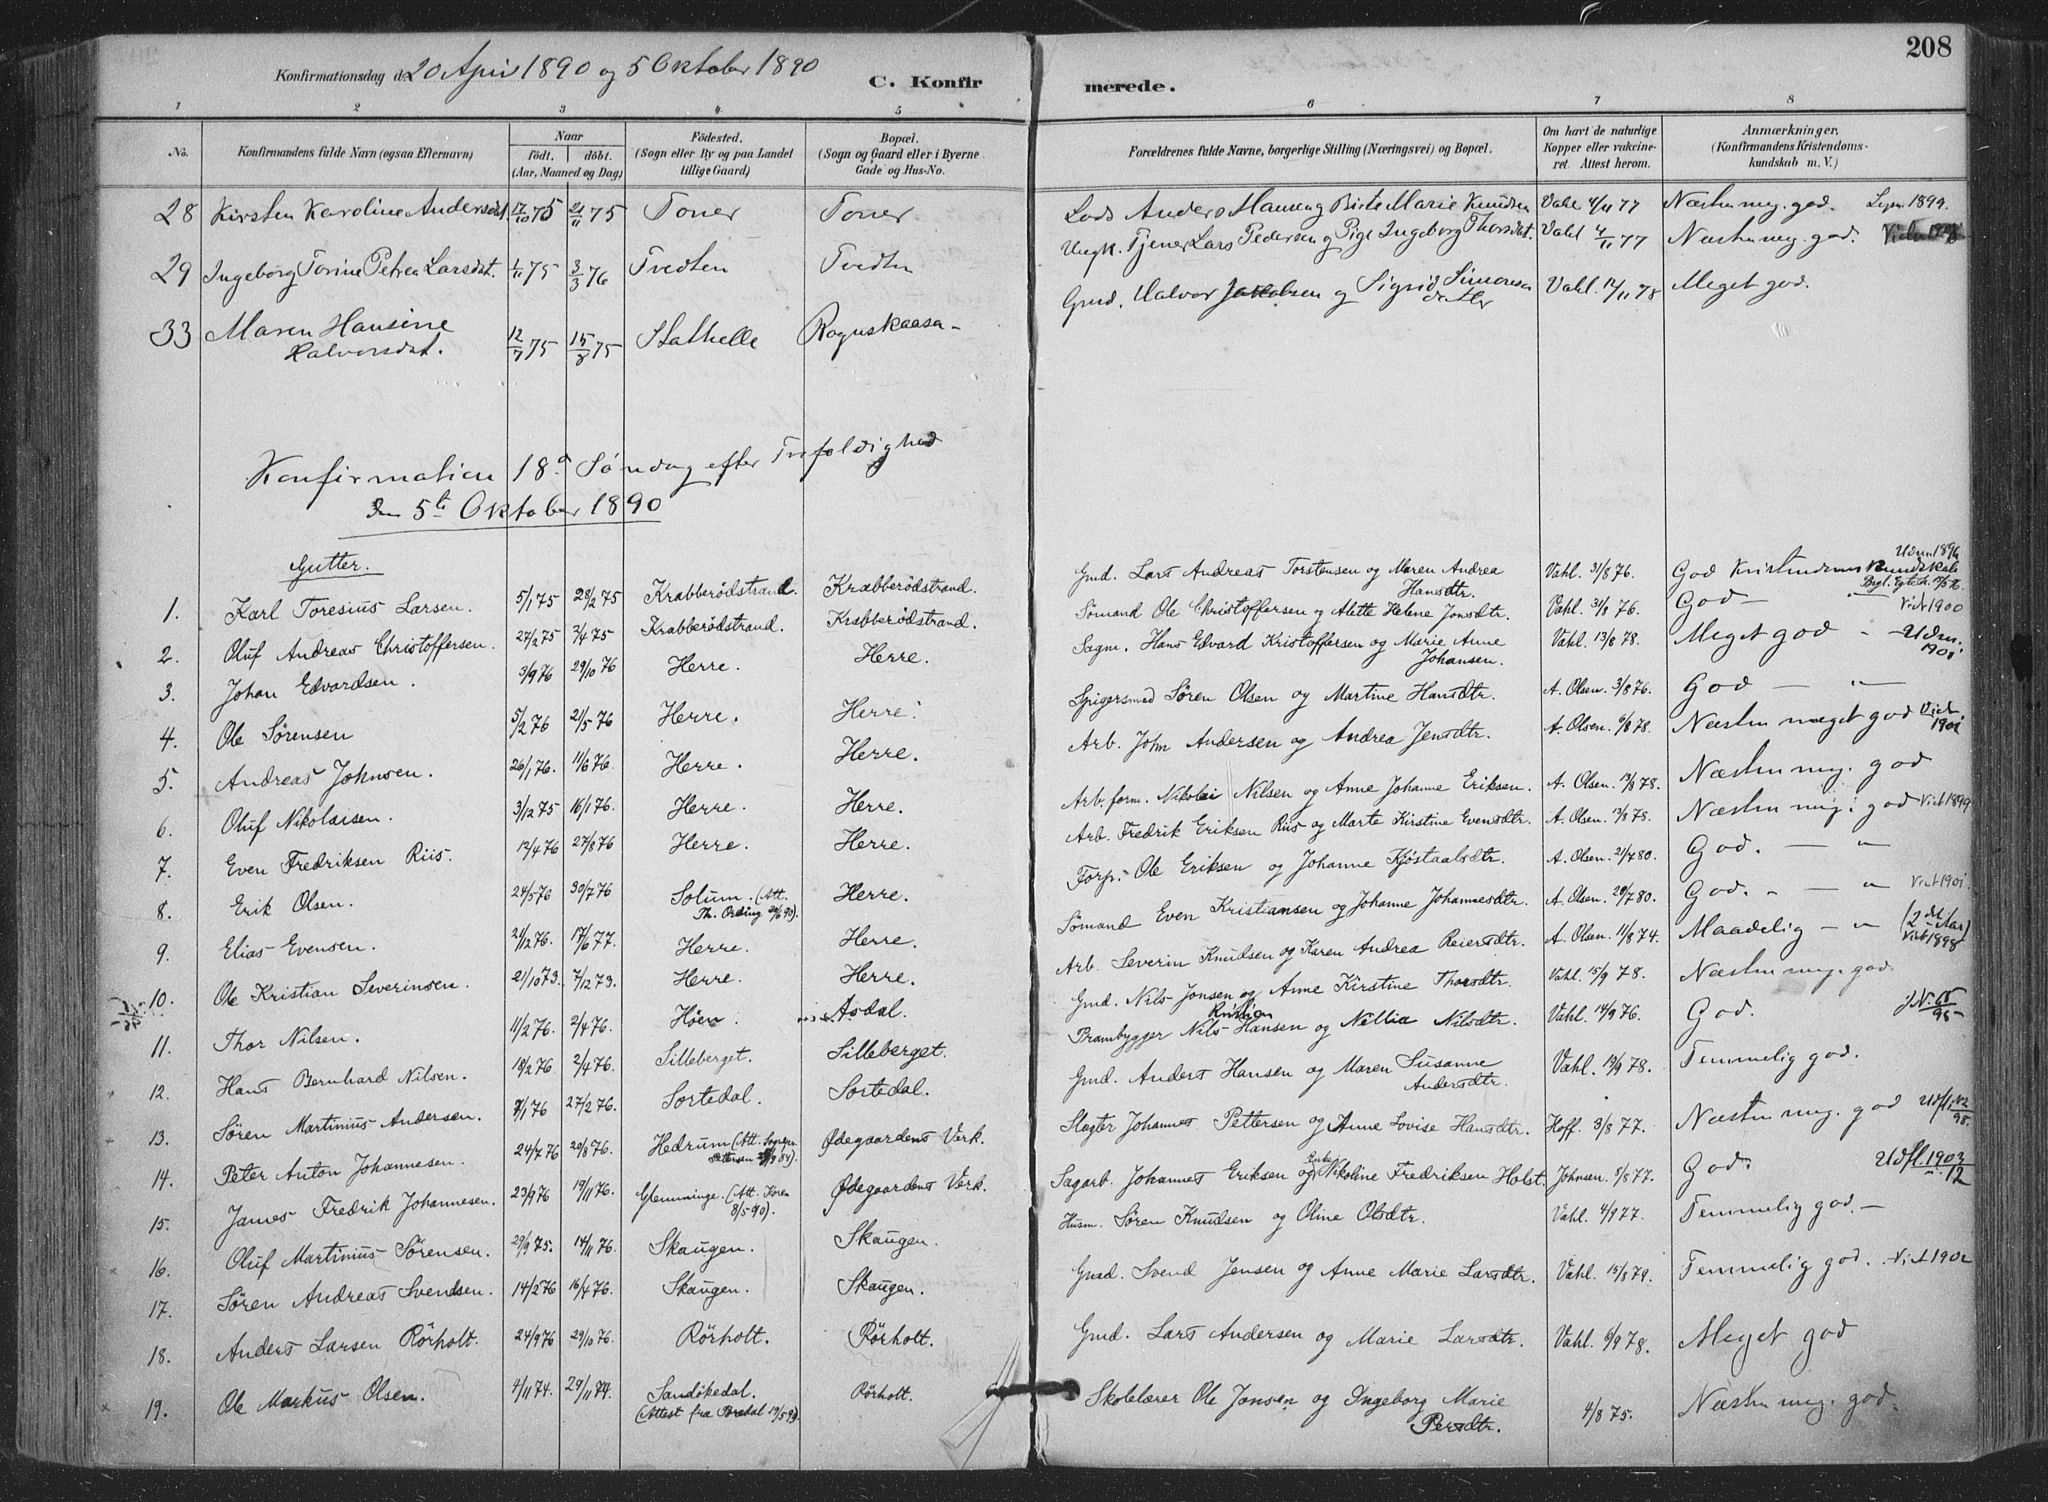 208
Konfirmationsdag d. 20 April 1890 og 5 Oktober 1890
C. Konfirmerede.
1 2 3 4 5 6 7 8
No. Konfirmandens fulde Navn (ogsaa Efternavn) Naar født. døbt. (Aar, Maaned og Dag) Fødested. (Sogn eller By og paa Landet tillige Gaard) Bopæl. (Sogn og Gaard eller i Byerne Gade og Hus-No. Forældrenes fulde Navne, borgerlige Stilling (Næringsvei) og Bopæl. Om havt de naturlige Kopper eller vakcineret. Attest herom. Anmærkninger. (Konfirmandens Kristendomskundskab m. V.)
28 Kirsten Karoline Andersdat. 17/10 75 21/11 75 Toner Toner Lods Anders Hansen og Birte Marie Knudsen Vahl 4/11 77 Næsten meg. god. 1899.
29 Ingeborg Torine Petrea Larsdat. 1/11 75 3/3 76 Tvedten Tvedten Ungk. Tjener Lars Pedersen og Pige Ingeborg Thorsdat. Vahl 4/11 77 Næsten meg. god.
33 Maren Hansine Halvorsdat. 12/7 75 15/8 75 Stathelle Rognskaasa Gmd. Halvor Jakobsen og Sigrid Simonsdatter Vahl. 12/11 78 Meget god.
Konfirmation 18de Søndag efter Trefoldighed
den 5te Oktober 1890
Gutter.
1. Karl Toresius Larsen. 5/1 75 28/2 75 Krabberödstrand. Krabberödstrand. Gmd. Lars Andreas Torstensen og Maren Andrea Hansdtr. Vahl. 31/8 76. God Kristendomskundskab Udm. 1896
2. Oluf Andreas Christoffersen. 27/2 75 3/4 75 Krabberödstrand. Krabberödstrand. Sømand Ole Christoffersen og Alette Helene Jonsdtr. Vahl. 31/8 76. God — " Vidt 1900
3. Johan Edvardsen. 3/9 76 29/10 76 Herre. Herre. Sagm. Hans Edvard Kristoffersen og Marie Anne Johansen. Vahl. 13/8 78. Meget god - Udm. 1901
4. Ole Sørensen 5/2 76 21/5 76 Herre. Herre. Spigersmed Sören Olsen og Martine Hansdtr. A. Olsen. 3/8 76. God — "
5. Andreas Johnsen. 26/1 76. 11/6 76. Herre. Herre. Arb. John Andersen og Andrea Jensdtr. A. Olsen. 6/8 78. Næsten meget god Vidt. 1901
6. Oluf Nikolaisen. 3/12 75 16/1 76. Herre. Herre. Arb. form. Nikolai Nilsen og Anne Johanne Eriksen. A. Olsen. 13/8 78. Næsten meg. god
7. Even Fredriksen Riis. 12/4 76 27/8 76 Herre. Herre. Arb. Fredrik Eriksen Riis og Marte Kirstine Evensdtr. A. Olsen. 13/8 78. Næsten meg. god Vidt 1899
8. Erik Olsen. 24/5 76 30/7 76 Solum. (Att. Th. Ording 20/6 90). Herre. Forp. Ole Eriksen og Johanne Kjöstaalsdtr. A. Olsen. 21/7 80. God. — "
9. Elias Evensen. 21/12 76. 17/6 77. Herre. Herre. Sømand Even Kristiansen og Johanne Johannesdtr. A. Olsen. 20/7 80. God. — " Vidt 1901
10. Ole Kristian Severinsen. 21/10 73. 7/12 73. Herre. Herre. Arb. Severin Knudsen og Karen Andrea Reiersdtr. A. Olsen. 11/8 74. Maadelig — " (2det Aar) Vidt 1898
11. Thor Nilsen. 11/2 76. 2/4 76. Höen. Asdal. Gmd. Nils Jonsen og Anne Kirstine Thorsdtr. Vahl. 15/9 78. Næsten meg. god
12. Hans Bernhard Nilsen. 18/2 76 2/4 76. Silleberget. Silleberget. Brambygger Nils Kristian Hansen og Nellia Nilsdtr. Vahl. 14/9 76. God.
13. Søren Martinius Andersen. 7/1 76 27/2 76. Sortedal. Sortedal. Gmd. Anders Hansen og Maren Susanne Andersdtr. Vahl. 19/9 78. Temmelig god.
14. Peter Anton Johannesen. 24/7 76 20/8 76. Hedrum (Att. Sognepr. Pettersen Ødegaardens Verk. Slagter Johannes Pettersen og Anne Lovise Hansdtr. Hoff. 3/8 77. Næsten meg. god
15. James Fredrik Johannesen. 23/9 76 19/11 76. Glemminge. (Att. Koren 8/5 90). Ødegaardens Verk. Sagarb. Johannes Eriksen og Enke Nikoline Fredriksen Holst. Johnsen. 8/8 77. God. Udfl. 1903 12
16. Oluf Martinius Sörensen. 29/9 75. 14/11 76. Skaugen. Skaugen. Husm. Sören Knudsen og Oline Olsdtr. Vahl. 4/9 77. Temmelig god. —
17. Søren Andreas Svendsen. 14/2 76 16/4 76. Skaugen. Skaugen. Gmd. Svend Jensen og Anne Marie Larsdtr. Vahl. 15/8 79. Temmelig god. Vidt 1902
18. Anders Larsen Rörholt. 24/9 76 29/10 76. Rörholt. Rörholt. Gmd. Lars Andersen og Marie Larsdtr. Vahl. 6/9 78. Meget god
19. Ole Markus Olsen. 4/11 74. 29/11 74. Sandökedal. (Attest fra Bredal 19/5 90) Rörholt. Skolelærer Ole Jonsen og Ingeborg Marie Persdtr. 4/8 75. Næsten meg. god.